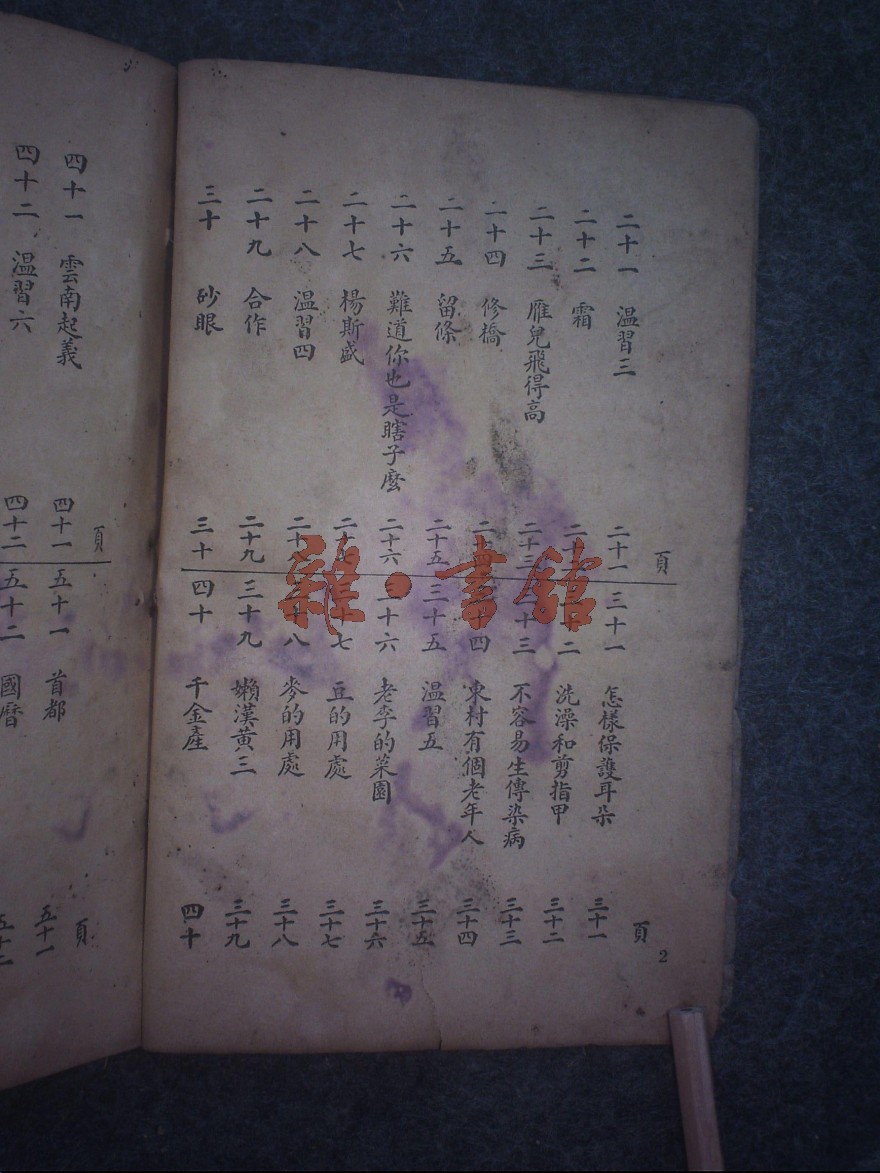 頁
二十一 温習三 二十一
二十二 霜
二十三 雁兒飛得高 二十三
二十四 修橋
二十五 留條 二十五
二十六 難道你也是瞎子麼 二十六
二十七 楊斯盛
二十八 温習四
二十九 合作 二十九
三十 砂眼 三十
頁
三十一 怎樣保護耳朵 三十一
洗澡和剪指甲 三十二
三十三 不容易生傳染病 三十三
東村有個老年人 三十四
三十五 温習五 三十五
三十六 老李的菜園 三十六
豆的用處 三十七
麥的用處 三十八
三十九 嬾漢黃三 三十九
四十 千金產 四十
2
頁
四十一 雲南起義 四十一
四十二 温習六 四十二
頁
五十一 首都 五十一
五十二 國曆 五十二
雜·書館